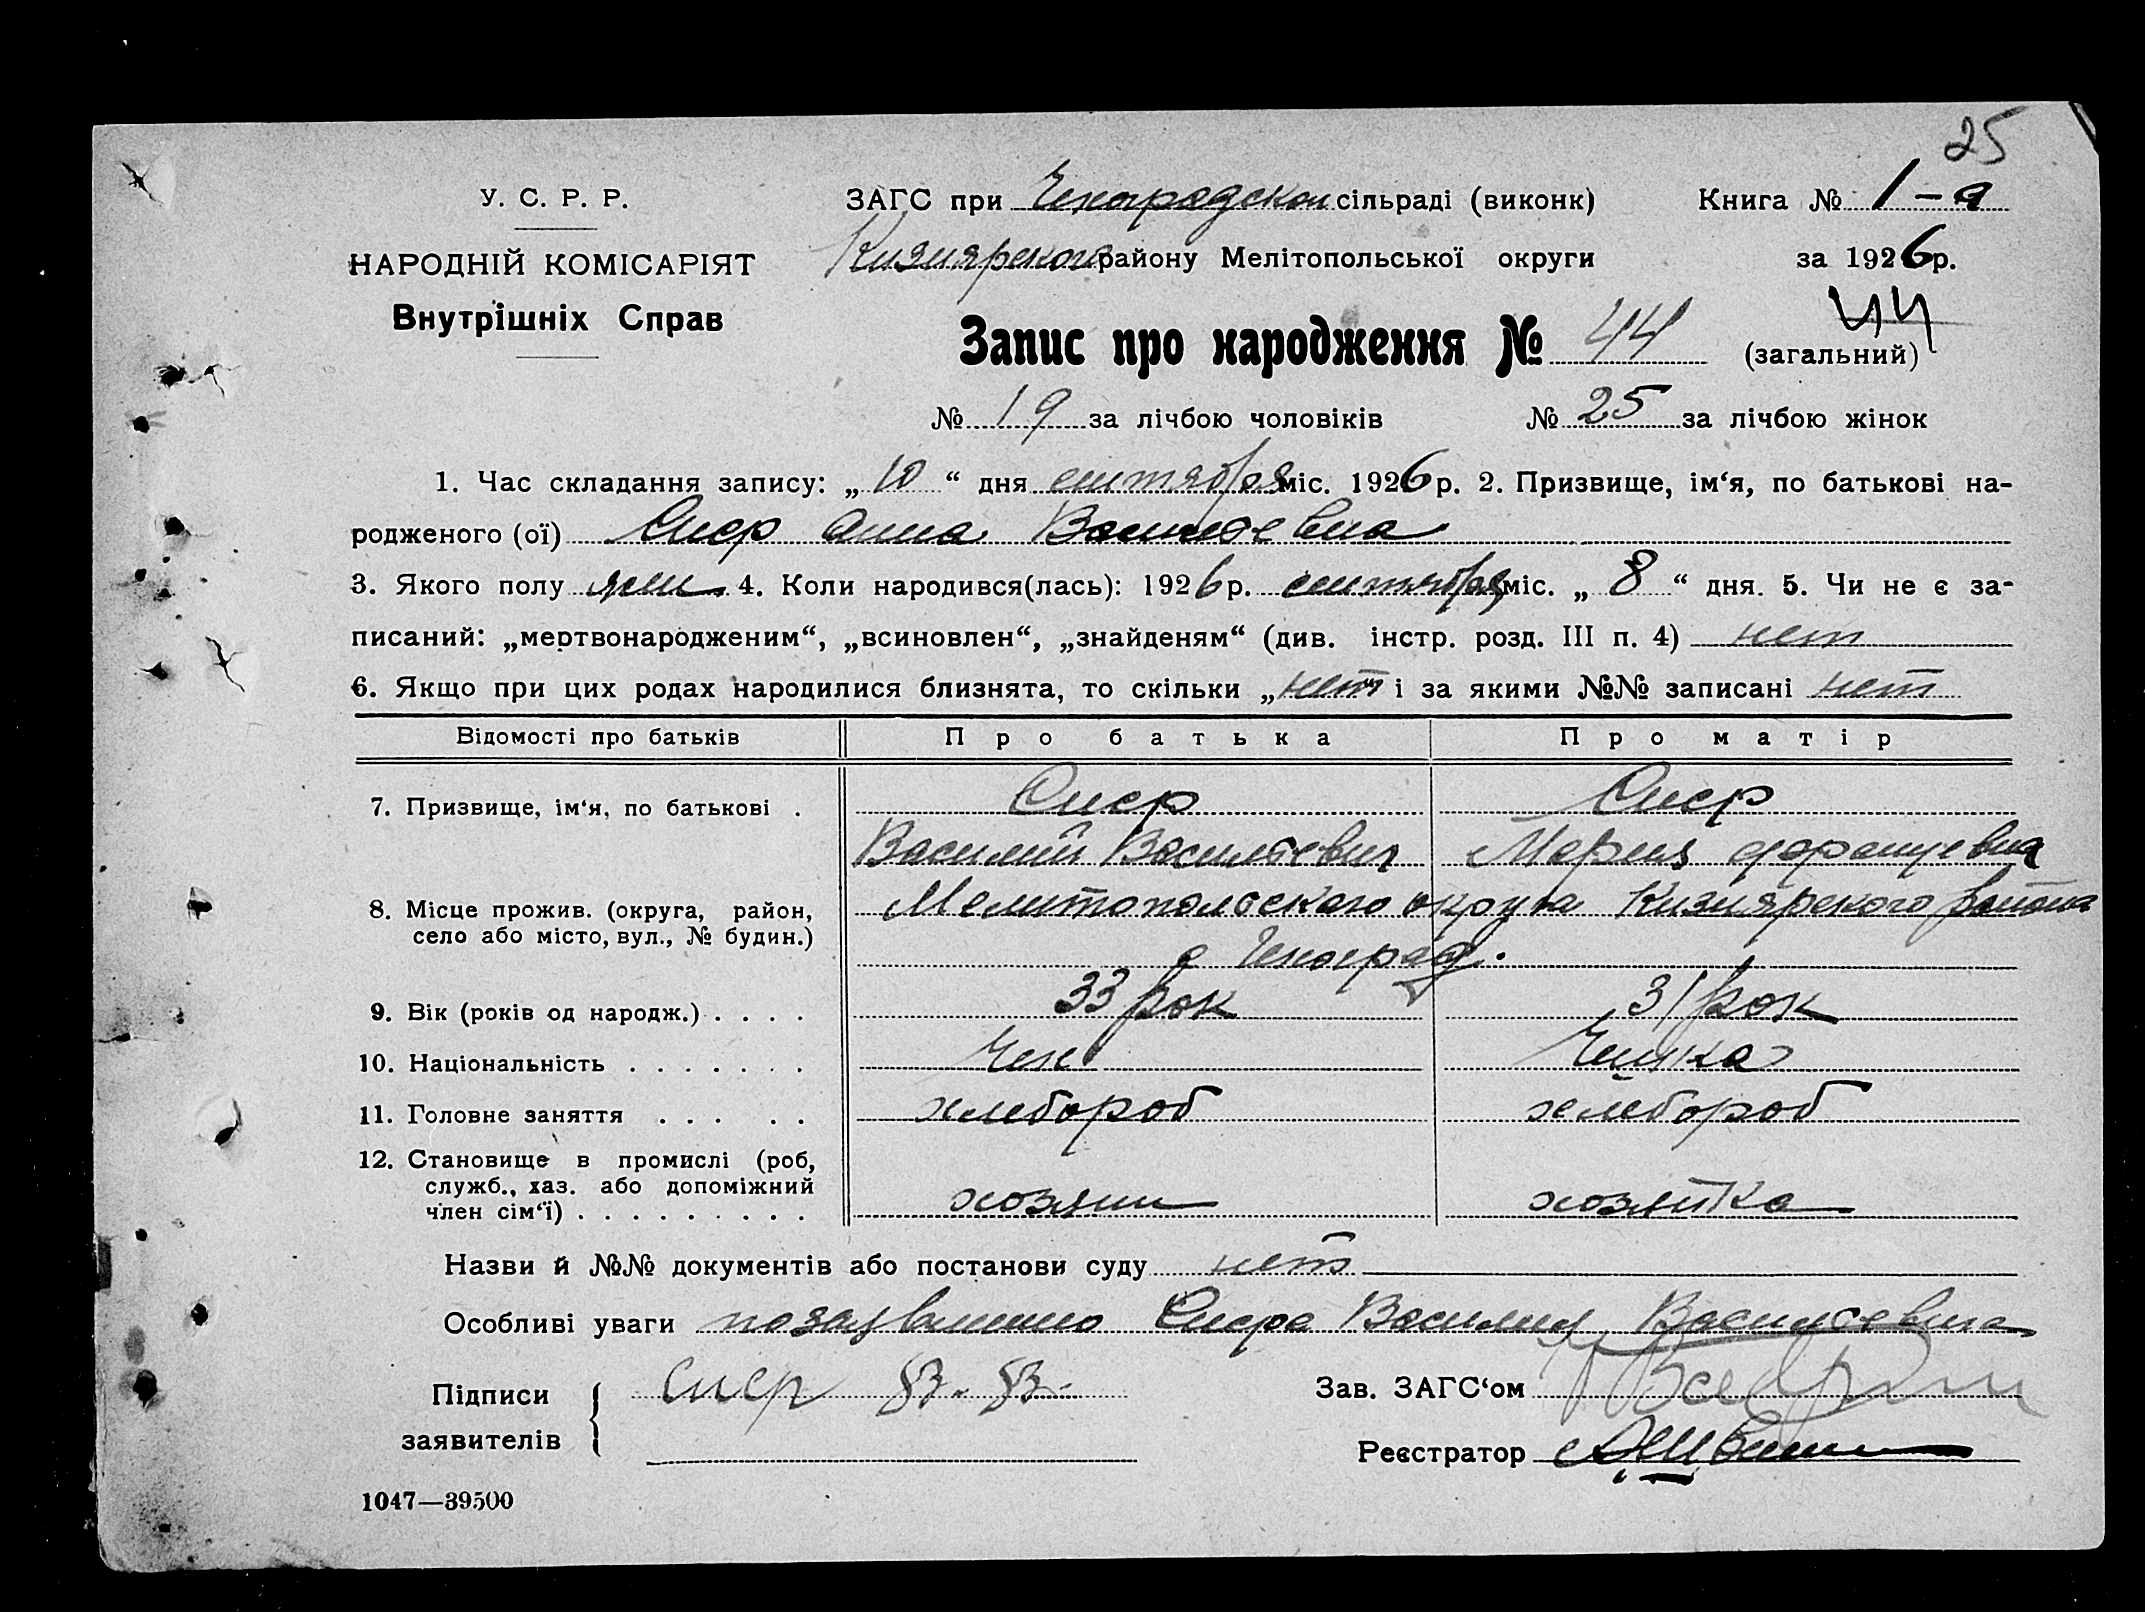 25
У. С. Р. Р.
ЗАГС при Чехоградской сільраді (виконк)
Книга № 1-а
НАРОДНІЙ КОМІСАРІЯТ
Кизиярского району Мелітопольської округи
за 1926р.
Внутрішніх Справ
44
Запис про народження № 44 (загальний)
№ 19 за лічбою чоловіків № 25 за лічбою жінок
1. Час складання запису: „ 10 “ дня сентября міс. 1926р. 2. Призвище, ім‘я, по батькові на-
родженого (ої) Анна Васильевна
3. Якого полу жен. 4. Коли народився(лась): 1926р. сентября міс. „ 8 “ дня. 5. Чи не є за-
писаний: „мертвонародженим“, „всиновлен“, „знайденям“ (див. інстр. розд. III п. 4) нет
6. Якщо при цих родах народилися близнята, то скільки „ нет і за якими №№ записані нет
Відомості про батьків Про батька Про матір
7. Призвище, ім‘я, по батькові .
Василий Васильевич Мария Францевна
8. Місце прожив. (округа, район, село або місто, вул., № будин.) Мелитопольского округа Кизиярского района
с Чехоград.
9. Вік (років од народж.) . . . . 33 рок 31 рок
10. Національність . . . . . . . Чех Чешка
11. Головне заняття . . . . . хлебороб хлебороб
12. Становище в промислі (роб,
служб., хаз. або допоміжний
член сім‘ї) . . . . . . . . . хозяин хозяйка
Назви й №№ документів або постанови суду нет
Особливі уваги Василия Васильевича
Підписи
заявителів
Зав. ЗАГС‘ом
Реєстратор
1047—39500